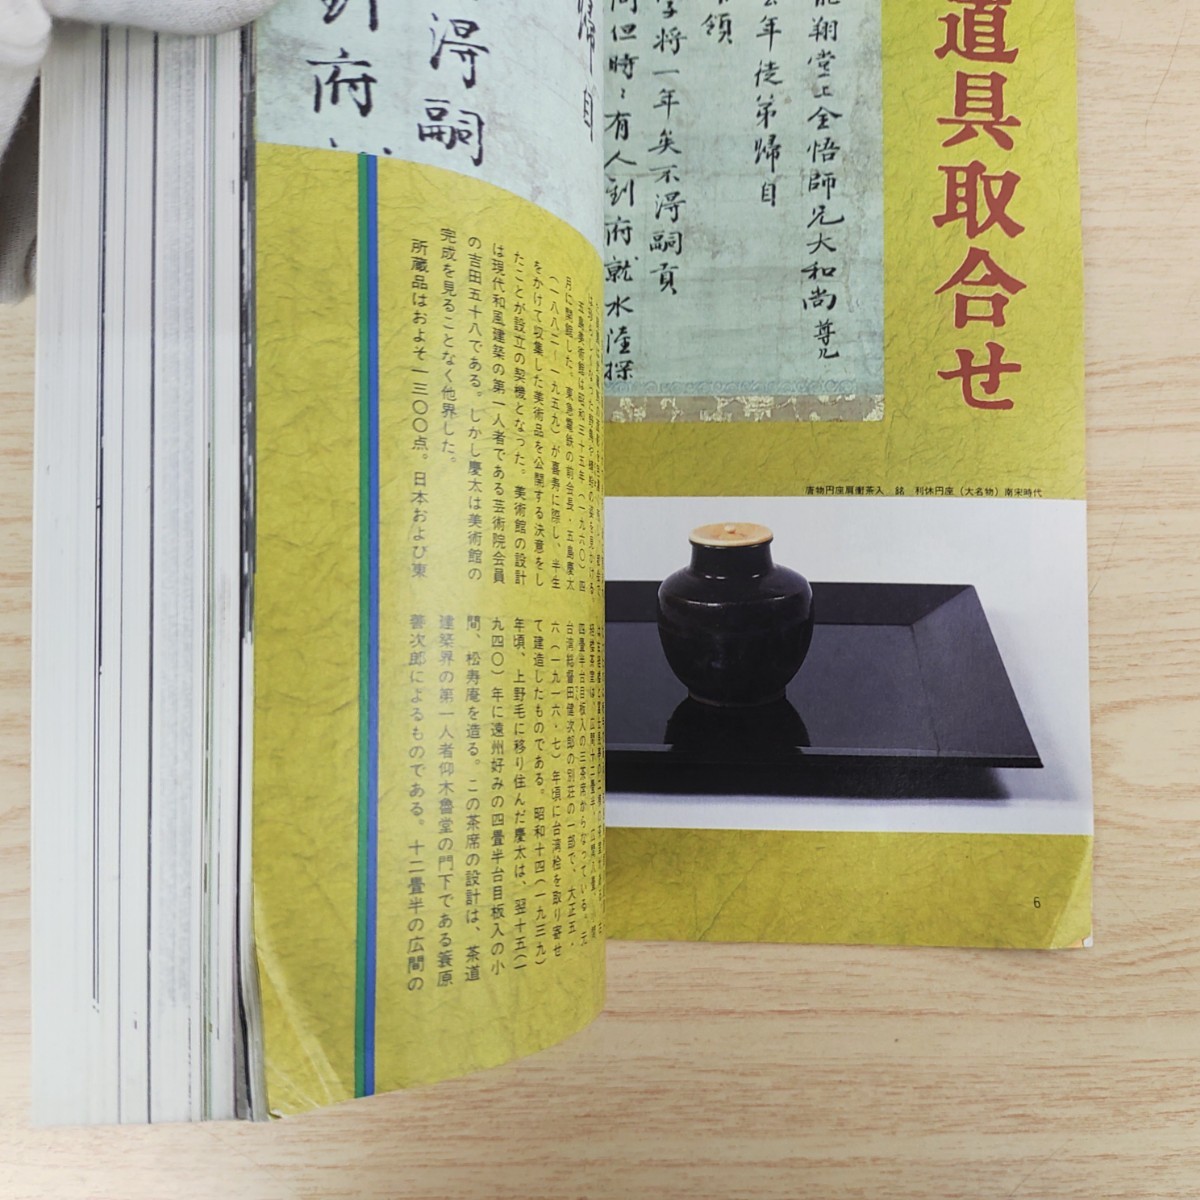 道具取合せ
能翔堂上全悟師兄大和尚 尊几
年徒弟歸自
領
将一年矣不得嗣貢
但時〻有人到府就水陸探
唐物円座肩衝茶入 銘 利休円座（大名物）南宋時代
6
歸自
得嗣
到府
五島美術館は昭和三十五年（一九六〇）四
月に開館した。東急電鉄の前会長・五島慶太
（一八八二―一九五九）が喜寿に際し、半生
をかけて収集した美術品を公開する決意をし
たことが設立の契機となった。美術館の設計
は現代和風建築の第一人者である芸術院会員
の吉田五十八である。しかし慶太は美術館の
完成を見ることなく他界した。
所蔵品はおよそ一三〇〇点。日本および東
四畳半台目板入の三茶席からなっている。元
台湾総督田健次郎の別荘の一部で、大正五・
六（一九一六・七）年頃に台湾桧を取り寄せ
て建造したものである。昭和十四（一九三九）
年頃、上野毛に移り住んだ慶太は、翌十五（一
九四〇）年に遠州好みの四畳半台目板入の小
間、松寿庵を造る。この茶席の設計は、茶道
建築界の第一人者仰木魯堂の門下である簔原
善次郎によるものである。十二畳半の広間の